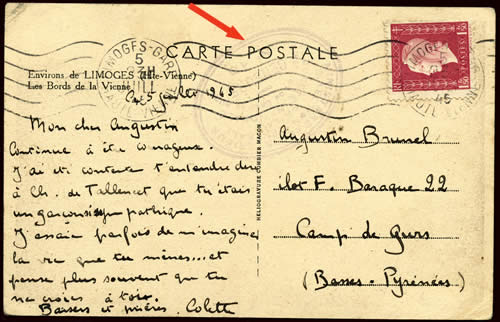 CARTE POSTALE
LIMOGES-GARE
5
JUIL
45
1F50
Environs de LIMOGES (Hte-Vienne)
Les Bords de la Vienne
5 juillet 1945
Mon cher Augustin
Continue à être courageux.
J'ai été contente d'entendre dire
à Ch. de Tallencet que tu étais
un garçon sympathique.
J'essaie parfois de m'imaginer
la vie que tu mènes... et
pense plus souvent que tu
ne crois à toi.
Baisers et prières. Colette
HELIOGRAVURE COMBIER MACON
Augustin Brunel
ilot F. Baraque 22
Camp de Gurs
(Basses-Pyrénées)